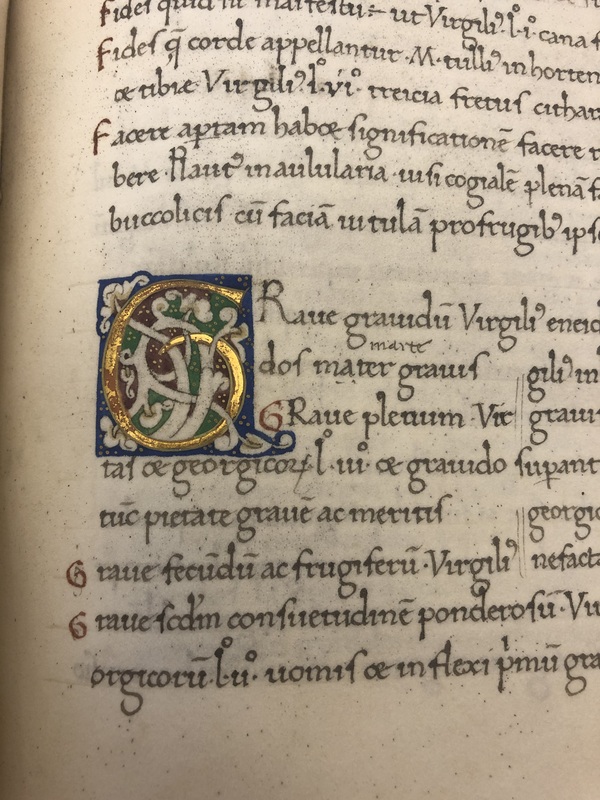 Fides quid in ut Virgili' l° i° cana f
Fides q̄ corde appellantur · M · tulli' in horten
œ tibiæ Virgili' l° vi° treicia fretus cithar
Facere aptam habœ significationē facere
bere · Plaut' in aulularia · plenā
buccolicis cū faciā uitulā pro frugib' ips
GRaue grauidū Virgili' eneid
marte
dos mater grauis gili' in
GRaue plenum Vir graui
tas œ georgicoꝝ l° iii° œ grauido supant
tuc pietate grauē ac meritis georgic
Graue fecūdū ac frugiferū · Virgili' nefacta
Graue scdm consuetudinē ponderosū · Vir
orgicorū l° u° uomis œ inflexi pmū gra